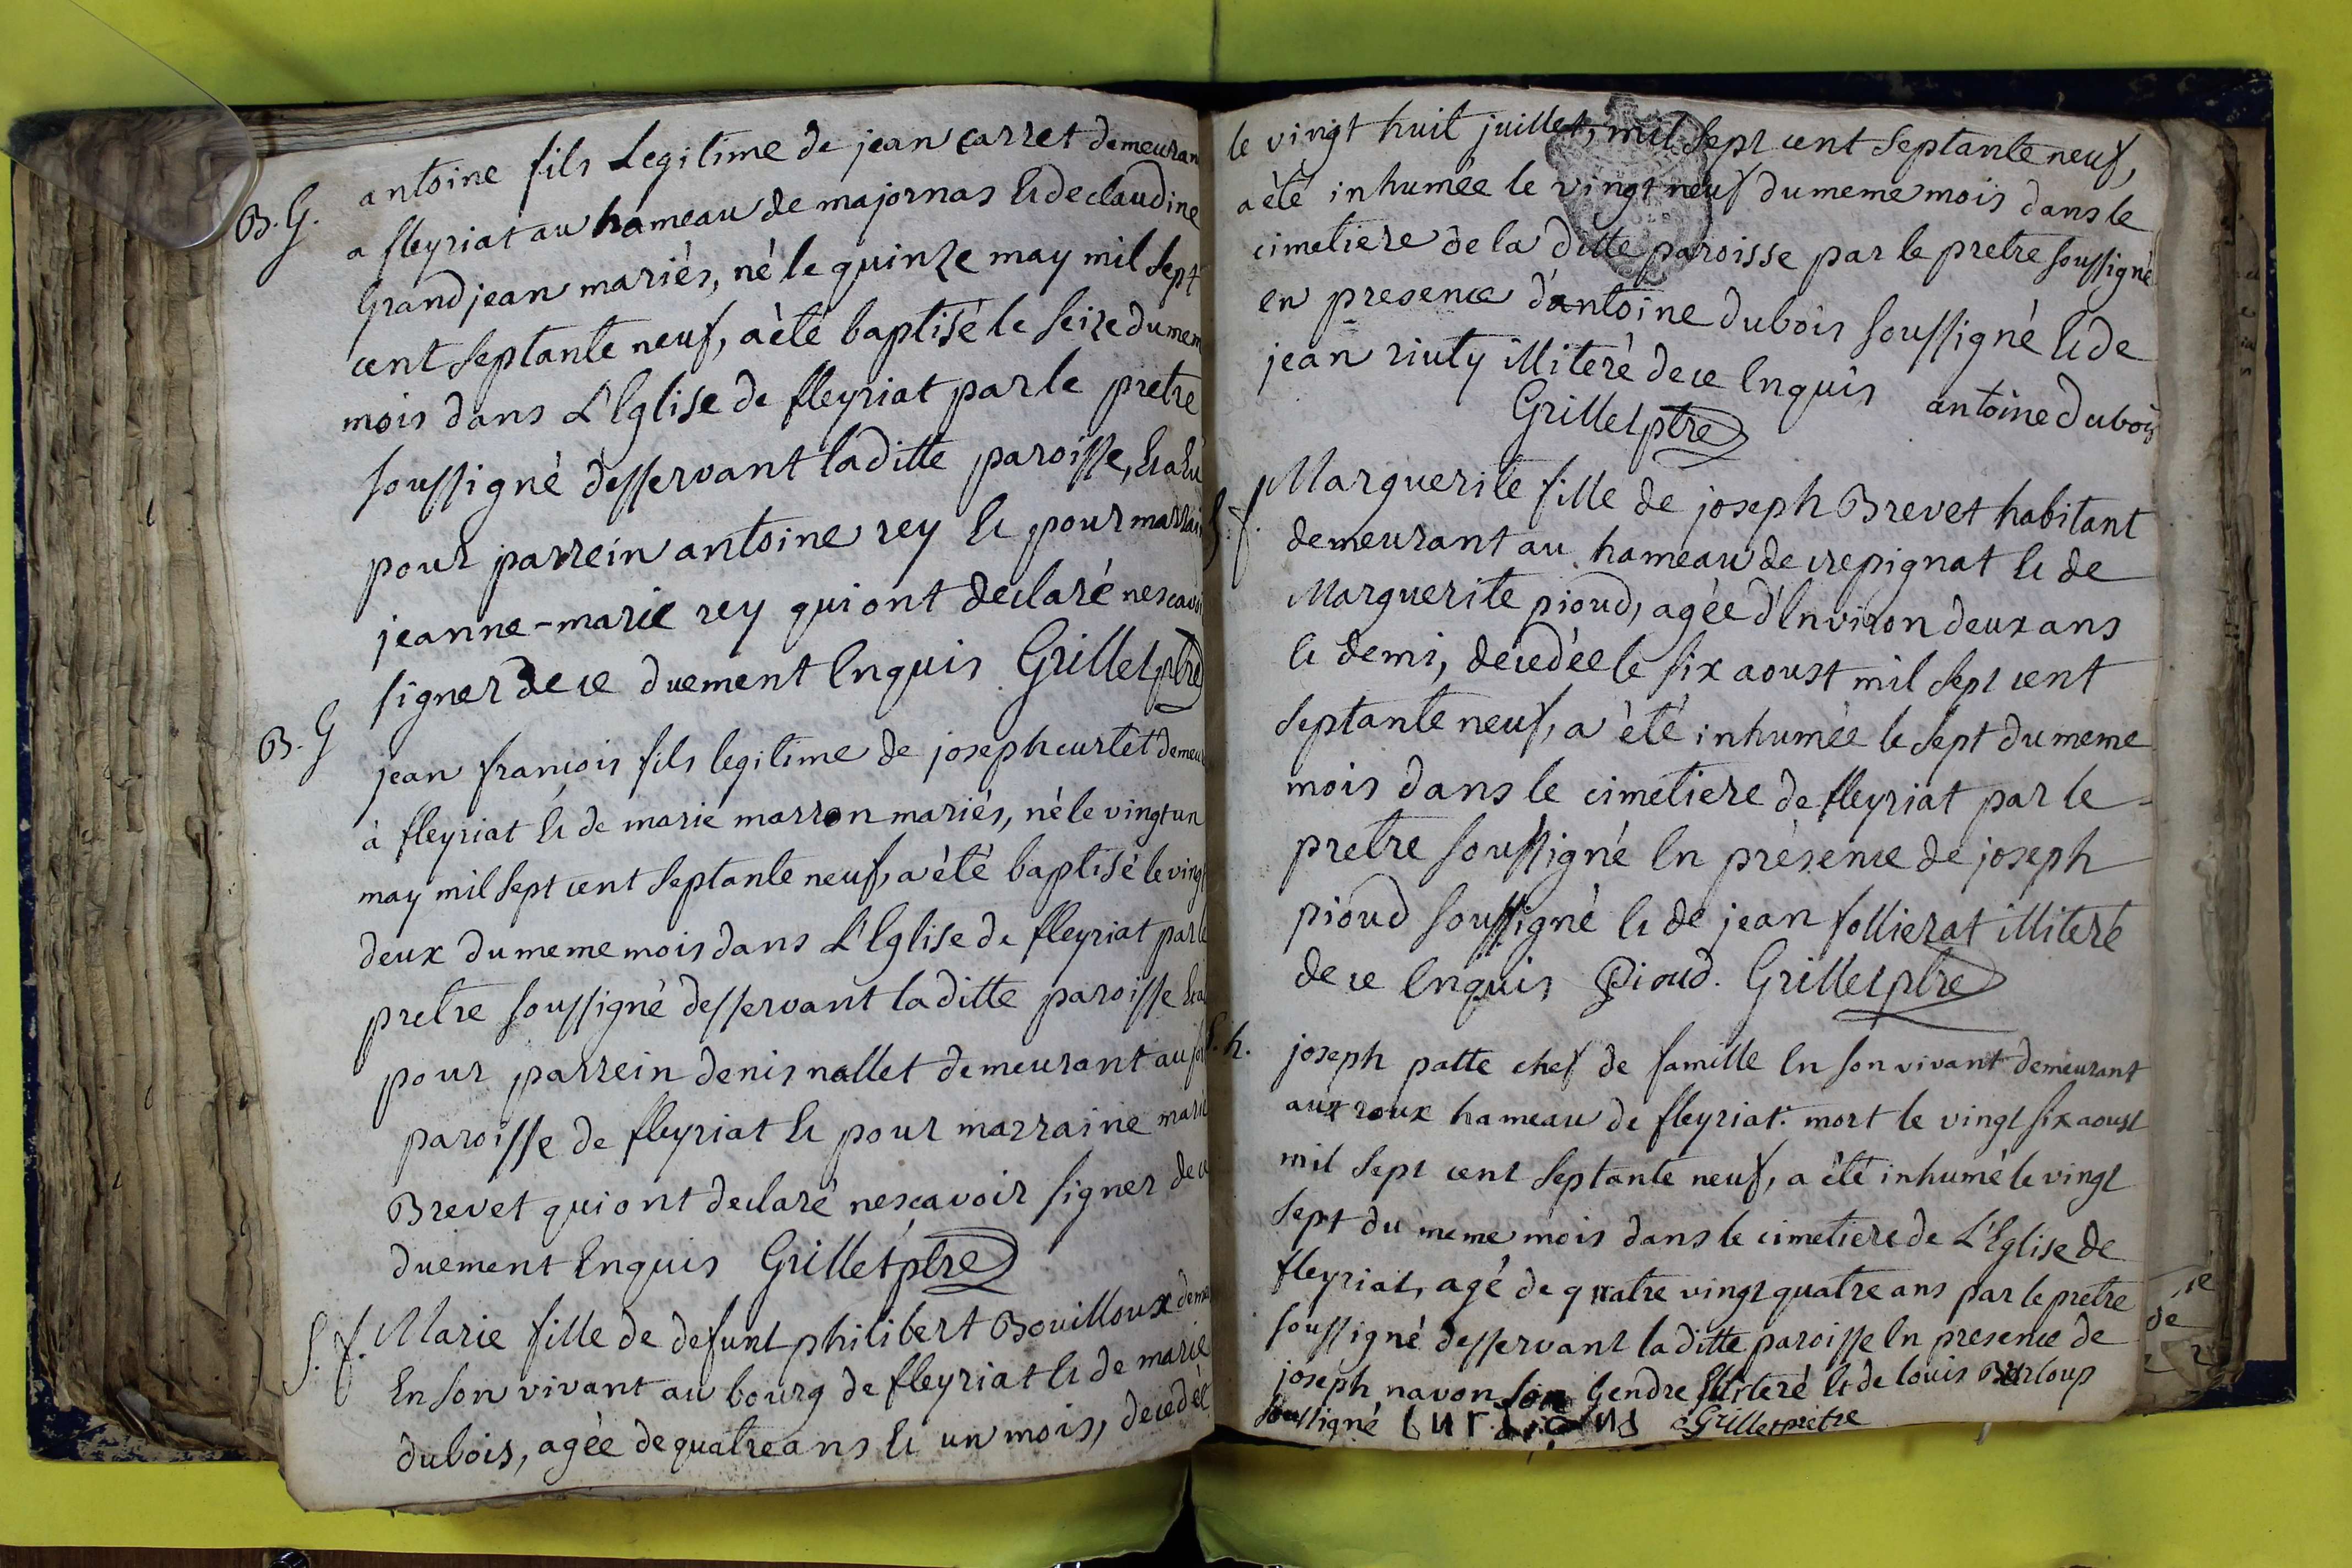 B. G. antoine fils Legitime de jean carret demeuran
a fleyriat au hameau de majornas et de claudine
Grandjean mariés, né le quinze may mil sept
cent septante neuf, a èté baptisé le seize du mem
mois dans L'Eglise de fleyriat par le pretre
soussigné desservant la ditte paroisse, et a Eu
pour parrein antoine rey et pour marrai
jeanne-marie rey qui ont declaré ne scavoi
signer de ce duement Enquis Grillet ptre
B. G jean francois fils legitime de joseph curtet demeu
à fleyriat et de marie marron mariés, né le vingt un
may mil sept cent septante neuf, a èté baptisé le vingt
deux du meme mois dans L'Eglise de fleyriat par le
pretre soussigné desservant la ditte paroisse et a
pour parrein denis nallet demeurant au
paroisse de fleyriat et pour marraine marie
Brevet qui ont declaré ne scavoir signer de ce
duement Enquis Grillet ptre
S. f. Marie fille de defunt philibert Bouilloux deme
En son vivant au bourg de fleyriat et de marie
dubois, agée de quatre ans et un mois, decedèe
le vingt huit juillet, mil sept cent septante neuf,
a èté inhumée le vingt neuf du meme mois dans le
cimetiere de la ditte paroisse par le pretre soussigné
en presence d'antoine dubois soussigné et de
jean riuty illiteré de ce Enquis antoine dubois
Grillet ptre
S. f. Marguerite fille de joseph Brevet habitant
demeurant au hameau de crepignat et de
Marguerite pioud, agée d'Environ deux ans
et demi, decedée le six aoust mil sept cent
septante neuf, a èté inhumée le sept du meme
mois dans le cimetiere de fleyriat par le
pretre soussigné En présence de joseph
pioud soussigné et de jean follierat illiteré
de ce Enquis Pioud. Grillet ptre
S. h. joseph patte chef de famille En son vivant demeurant
aux roux hameau de fleyriat. mort le vingt six aoust
mil sept cent septante neuf, a èté inhumé le vingt
sept du meme mois dans le cimetiere de L'Eglise de
fleyriat, agé de quatre vingt quatre ans par le pretre
soussigné desservant la ditte paroisse En presence de
joseph navon son Gendre illiteré et de louis Burloup
soussigné Grillet pretre